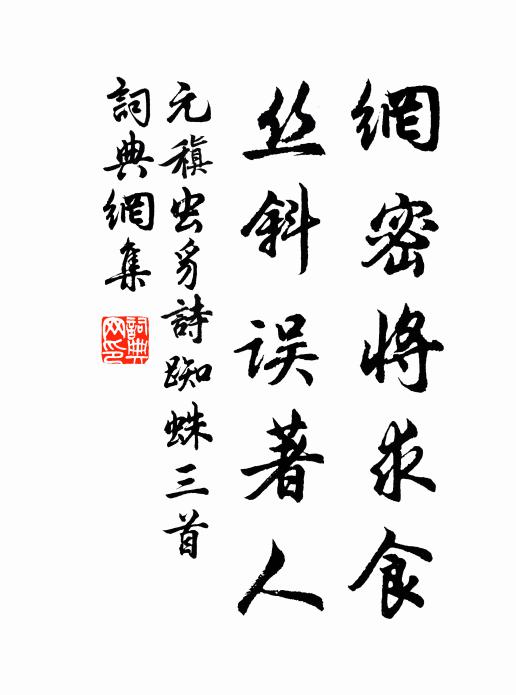 網密將求食
丝斜误著人
元稹虫豸詩蜘蛛三首
詞典網集
詞典網印